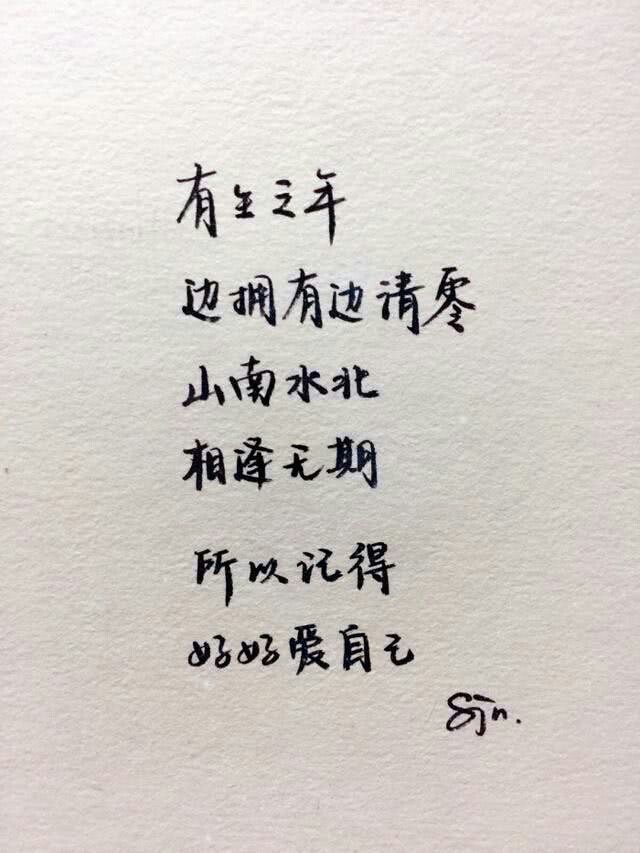 有生之年
边拥有边清零
山南水北
相逢无期
所以记得
好好爱自己
Sjn.